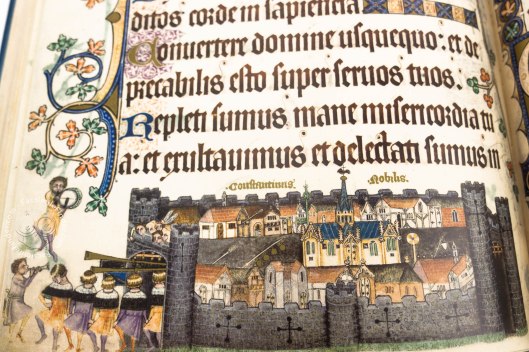 ditos corde in sapientia
Conuertere domine usquequo: et de
precabilis esto super seruos tuos.
Repleti sumus mane misericordia tu
a: et exultauimus et delectati sumus in
Constantinus. Nobilis.